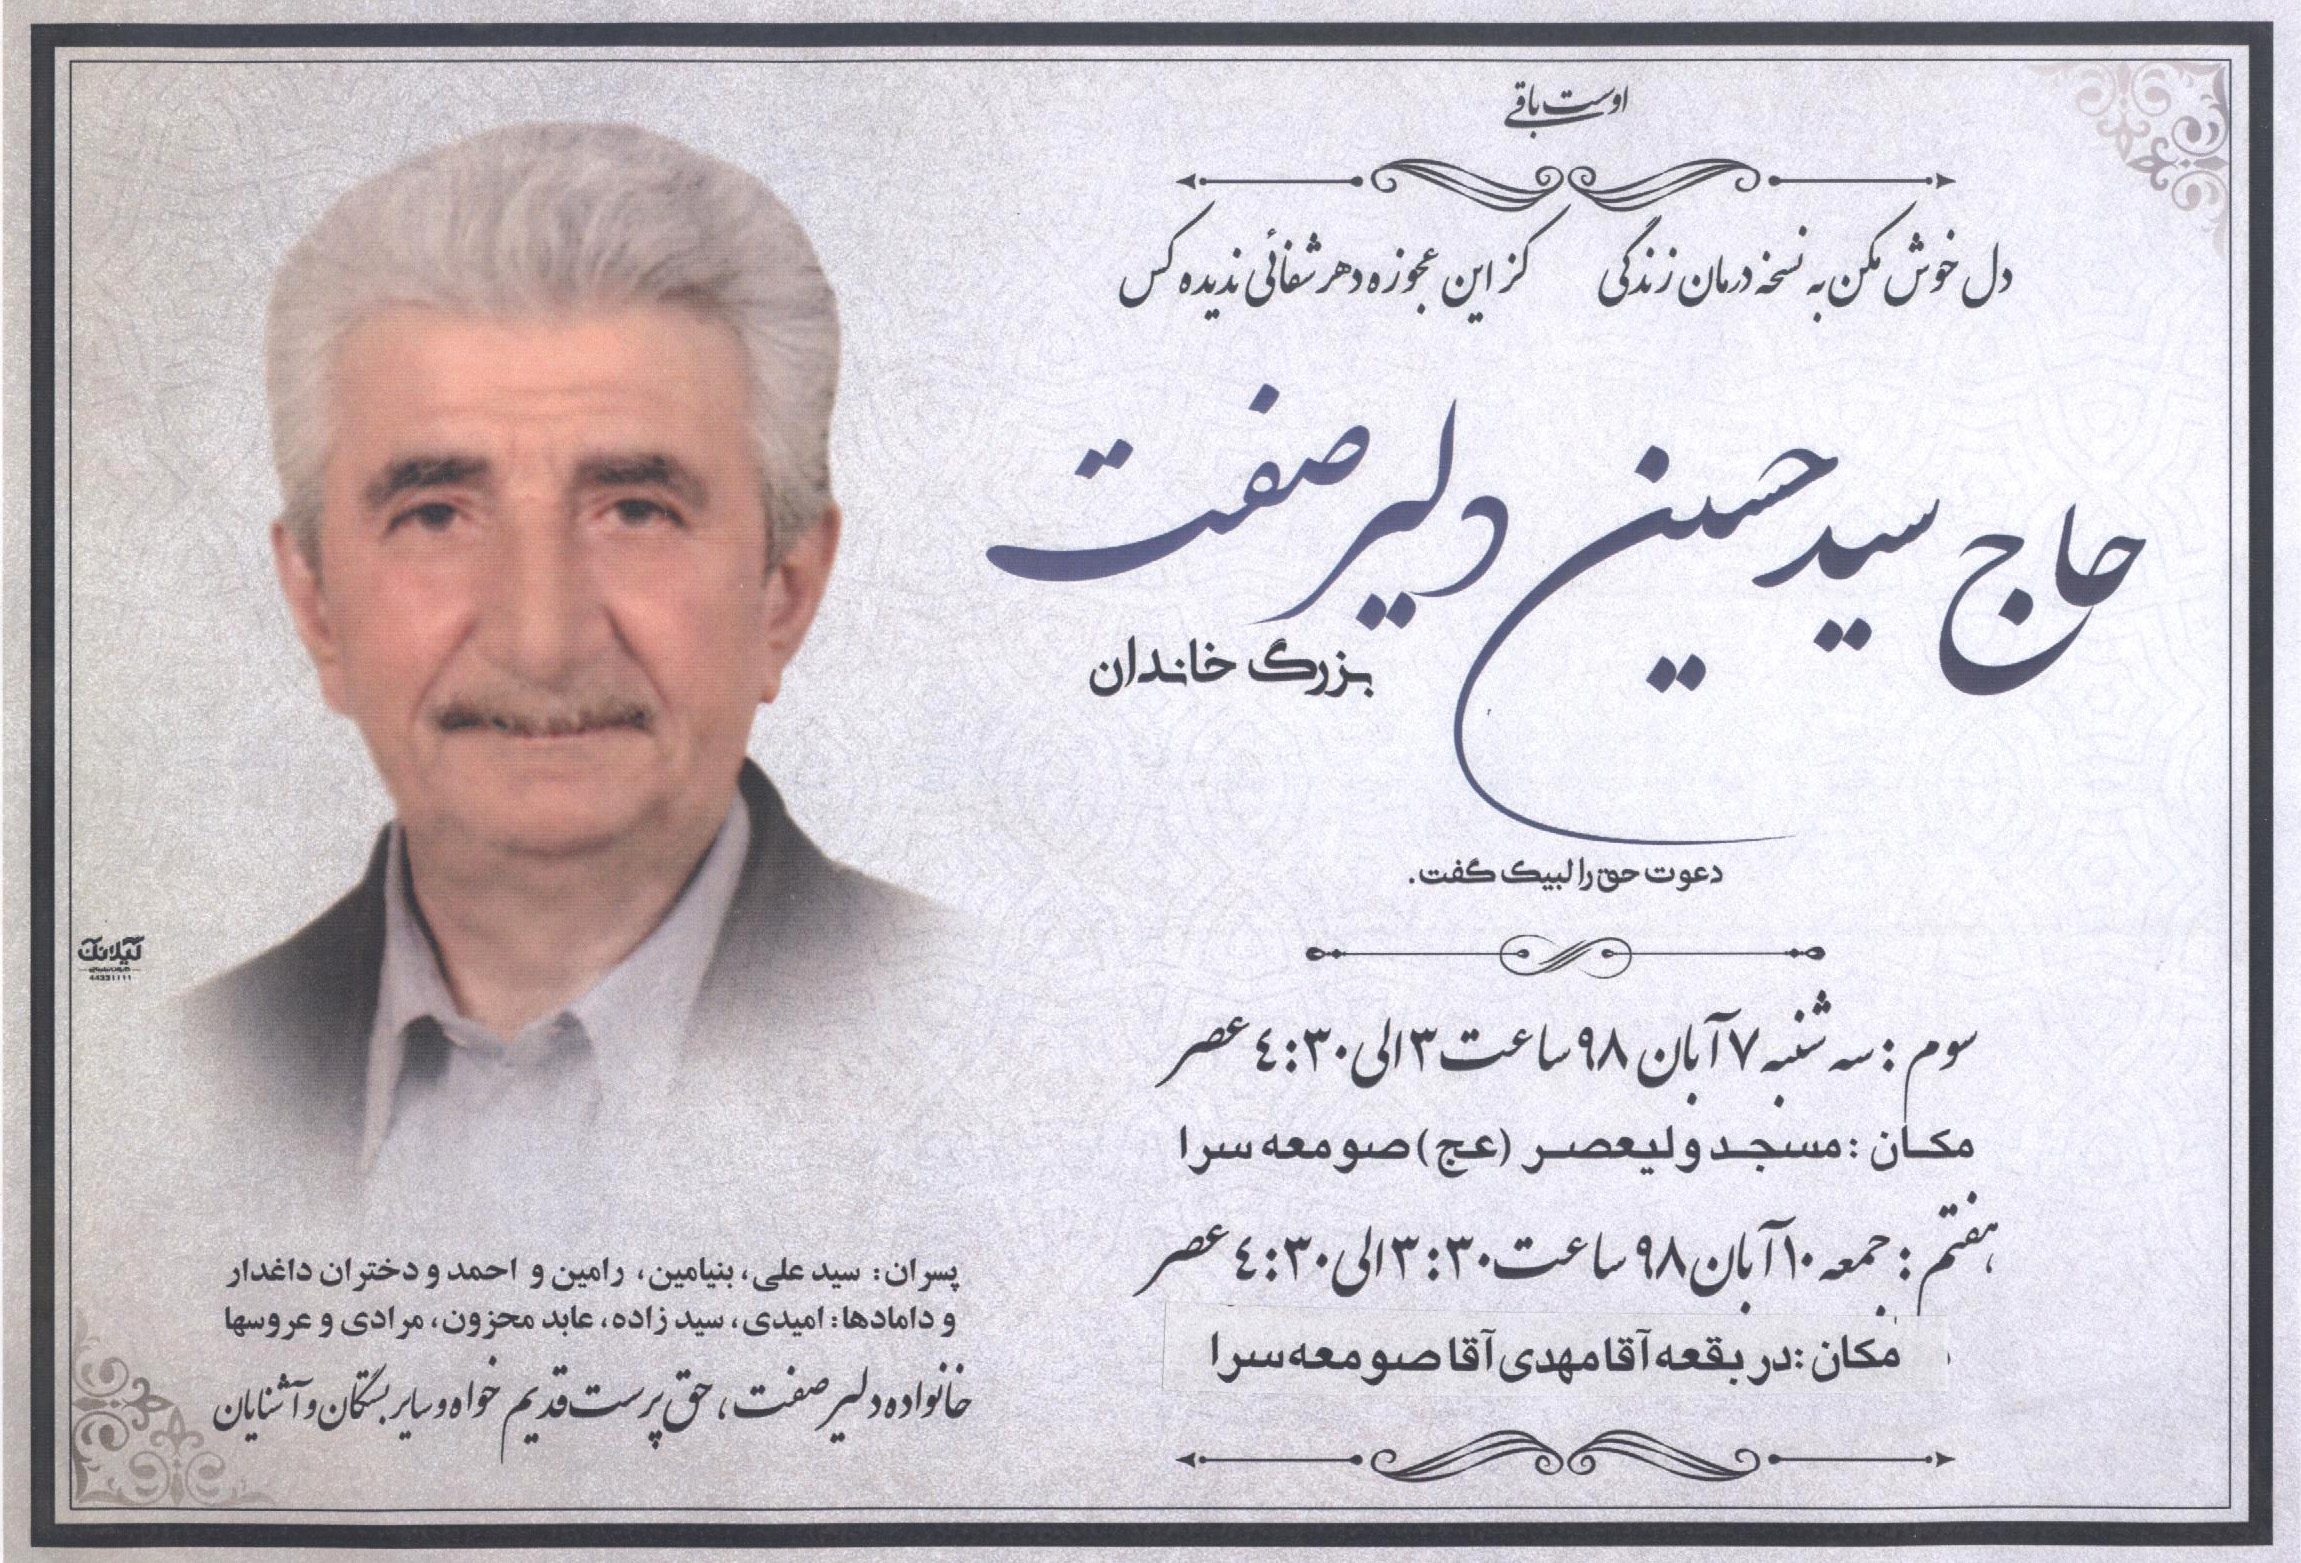 اوست باقی
دل خوش مکن به نسخه درمان زندگی    کز این عجوزه دهر شفائی ندیده کس
حاج سید حسین دلیر صفت
بزرگ خاندان
دعوت حق را لبیک گفت.
سوم : سه شنبه ۷ آبان ۹۸ ساعت ۳ الی ۴:۳۰ عصر
مکان : مسجد ولیعصر (عج) صومعه سرا
هفتم : جمعه ۱۰ آبان ۹۸ ساعت ۳:۳۰ الی ۴:۳۰ عصر
مکان : در بقعه آقا مهدی آقا صومعه سرا
پسران : سید علی، بنیامین، رامین و احمد و دختران داغدار
و دامادها : امیدی، سید زاده، عابد محزون، مرادی و عروسها
خانواده دلیر صفت، حق پرست قدیم خواه و سایر بستگان و آشنایان
گیلانک
44331111